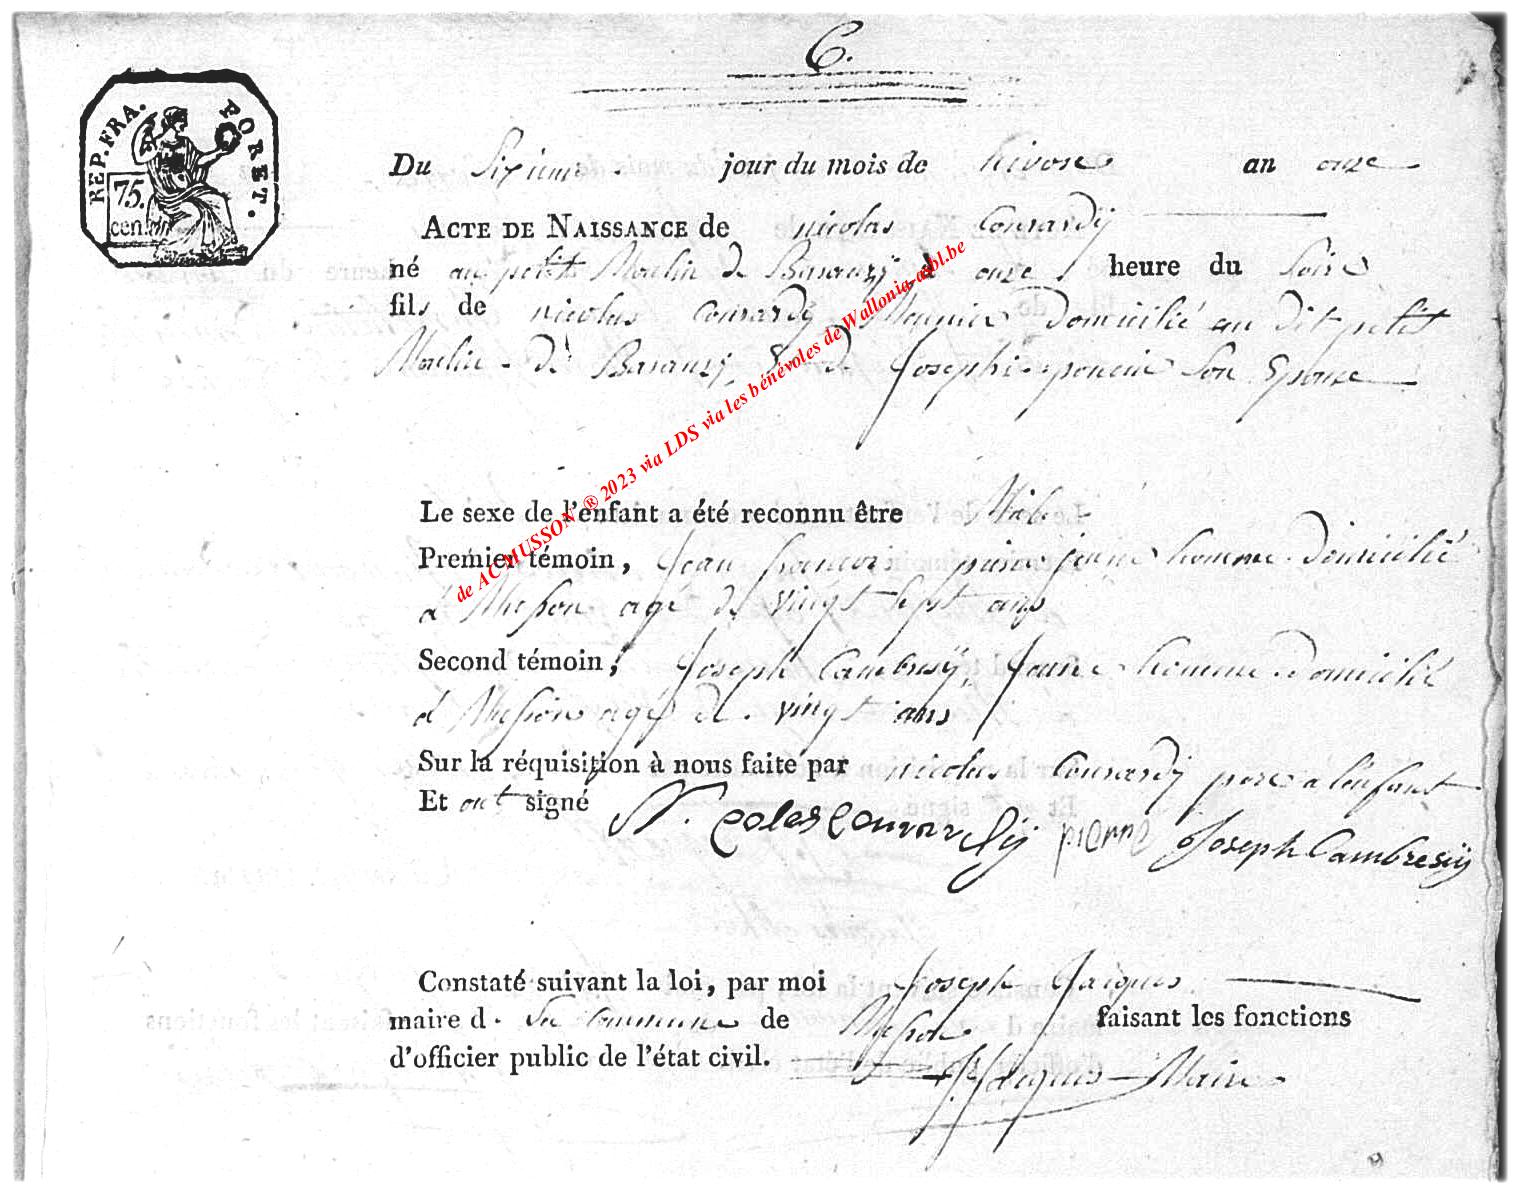 6.
REP. FRA. FORET.
75.
cen.
Du Sixieme jour du mois de nivose an onze
ACTE DE NAISSANCE de nicolas Conrardÿ
né au petit Moulin de Baranzÿ à onze heure du Soire
fils de nicolas Conrardÿ Meunier Domicilié au Dit petit
Moulin de Baranzÿ, & de Josephe poncin Son Epouse
Le sexe de l'enfant a été reconnu être Male
Premier témoin, Jean francois jeune homme Domicilié
à Musson agé de vingt Sept ans
Second témoin, Joseph Cambresÿ, Jeune homme Domicilié
à Musson agé de vingt ans
Sur la réquisition à nous faite par nicolas Conrardÿ pere a lenfant
Et ont signé N. Colas Conrardÿ pierre Joseph Cambresÿ
Constaté suivant la loi, par moi Joseph Jacques
maire d. La Commune de Musson faisant les fonctions
d'officier public de l'état civil. J. Jacques Maire
de AC MUSSON ® 2023 via LDS via les bénévoles de Wallonia-asbl.be